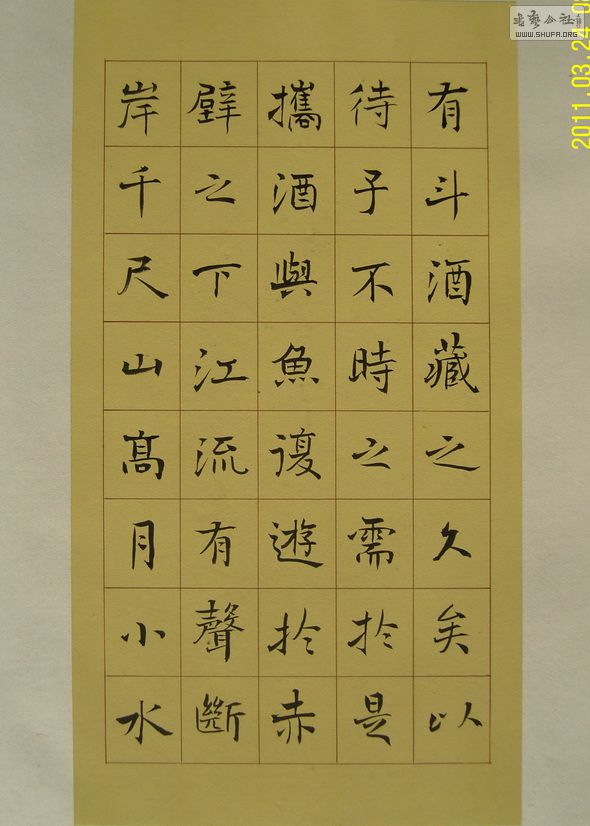 有斗酒藏之久矣以
待子不時之需於是
攜酒與魚復遊於赤
壁之下江流有聲斷
岸千尺山高月小水
書藝公社
WWW.SHUFA.ORG
2011.03.24